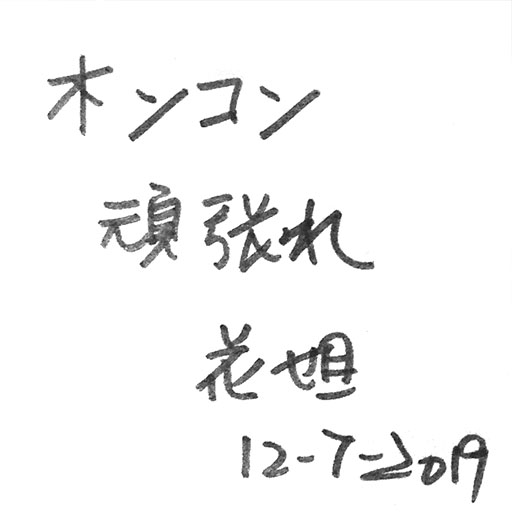 オンコン
頑張れ
花姐
12-7-2019